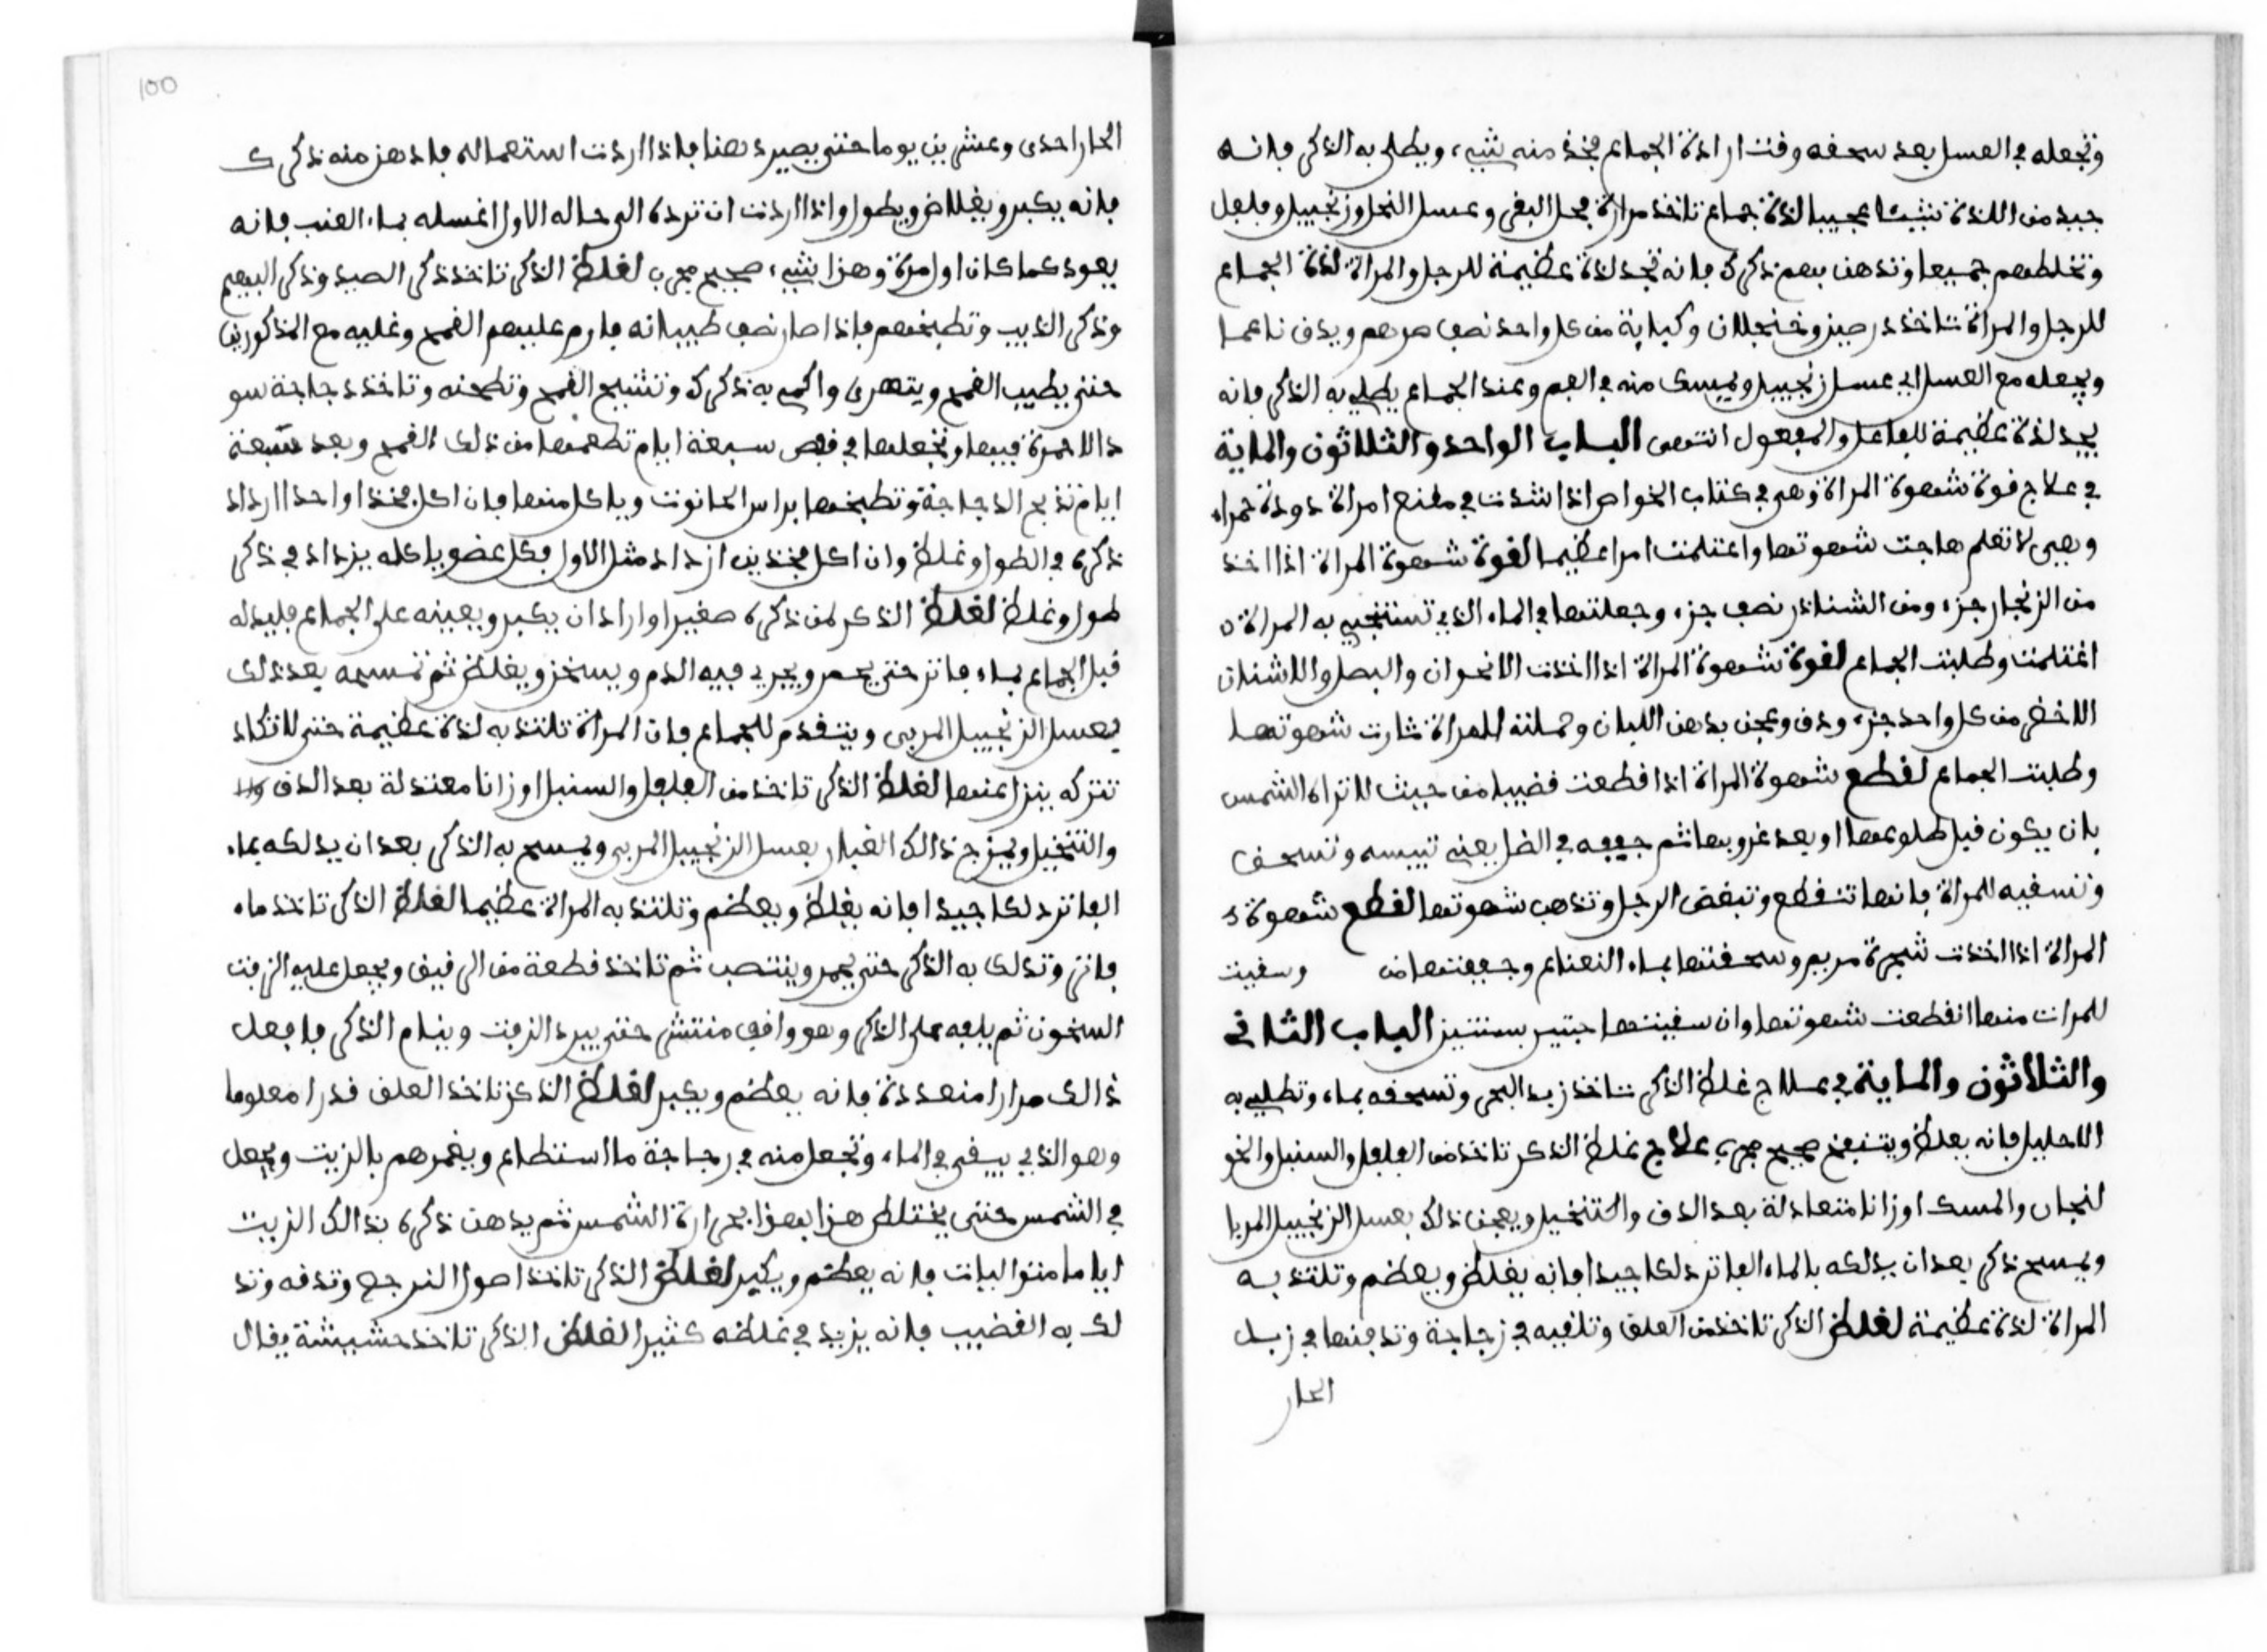 وتجعله في العسل بعد سحفه وقت ارادة الجماع فخذ منه شيء ويطلى به الذكر فانه
جيد من اللذة شيئا عجيبا لذة جماع تاخذ مرارة فحل البقر وعسل النحل وزنجبيل وفلفل
وتخلطهم جميعا وتدهن بهم ذكرك فانه تجد لذة عظيمة للرجل والمراة لذة الجماع
للرجل والمراة تاخذ دار صين وخنجلان وكبابة من كل واحد نصف درهم ويدق ناعما
ويجعله مع العسل اي عسل زنجبيل ويمسك منه في الفم وعند الجماع يطلي به الذكر فانه
يجد لذة عظيمة للفاعل والمفعول انتهى الباب الواحد والثلاثون والماية
في علاج قوة شهوة المراة وهي في كتاب الخواص اذا شدت في مقنع امراة دودة حمراء
وهي لا تعلم هاجت شهوتها واغتلمت امرا عظيما لقوة شهوة المراة اذا اخذ
من الزنجار جزء ومن الشناذر نصف جزء وجعلتها في الماء الذي تستنجي به المراة
اغتلمت وطلبت الجماع لقوة شهوة المراة اذا اخذت الاقحوان والبصل والاشنان
الاخضر من كل واحد جزء ودق وعجن بدهن اللبان وحملته المراة ثارت شهوتها
وطلبت الجماع لقطع شهوة المراة اذا قطعت قضيبا من حيث لا تراه الشمس
بان يكون قبل طلوعها او بعد غروبها ثم جففه في الظل يعني تيبسه وتسحق
وتسقيه للمراة فانها تنقطع وتبغض الرجل وتذهب شهوتها لقطع شهوة
المراة اذا اخذت شجرة مريم وسحقتها بماء النعناع وجففتها من وسقيت
للمرات منها انقطعت شهوتها وان سقيتها حبتين بسنتين الباب الثاني
والثلاثون والماية في علاج غلظ الذكر تاخذ زبد البحر وتسحقه بماء وتطلي به
الاحليل فانه يغلظ وينتفخ صحيح مجرب علاج غلظ الذكر تاخذ من الفلفل والسنبل والخو
لنجان والمسك اوزانا متعادلة بعد الدق والتنخيل ويعجن ذلك بعسل الزنجبيل المربا
ويمسح ذكره بعد ان يدلكه بالماء الفاتر دلكا جيدا فانه يغلظ ويعظم وتلتذ به
المراة لذة عظيمة لغلظ الذكر تاخذ من العلق وتلقيه في زجاجة وتدفنها في زبل
الحار
100
الحار احدى وعشرين يوما حتى يصير دهنا فاذا اردت استعماله فادهن منه ذكرك
فانه يكبر ويغلاض ويطول واذا اردت ان ترده الى حاله الاول اغسله بماء العنب فانه
يعود كما كان اول مرة وهذا شيء صحيح مجرب لغلظ الذكر تاخذ ذكر الصيد وذكر البهيم
وذكر الذيب وتطبخهم فاذا صار نصف طيبانه فارم عليهم القمح وغليه مع المذكورين
حتى يطيب القمح ويتهرى واكمد به ذكرك وتنشح القمح وتطحنه وتاخذ دجاجة سو
دا لا حمرة فيها وتجعلها في قفص سبعة ايام تطعمها من ذلك القمح وبعد سبعة
ايام تذبح الدجاجة وتطبخها براس الحانوت وياكل منها فان اكل فخذا واحدا ازداد
ذكره في الطول وغلظ وان اكل فخذين ازداد مثل الاول فكل عضو ياكله يزداد في ذكره
طول وغلظ لغلظ الذكر لمن ذكره صغيرا واراد ان يكبر ويعينه على الجماع فليدله
قبل الجماع بماء فاتر حتى يحمر ويجري فيه الدم ويسخن ويغلظ ثم تمسحه بعد ذلك
بعسل الزنجبيل المربى ويتقدم للجماع فان المراة تلتذ به لذة عظيمة حتى لا تكاد
تتركه ينزل عنها لغلظ الذكر تاخذ من الفلفل والسنبل اوزانا معتدلة بعد الدق
والتنخيل ويمزج ذالك الغبار بعسل الزنجبيل المربى ويمسح به الذكر بعد ان يدلكه بماء
الفاتر دلكا جيدا فانه يغلظ ويعظم وتلتذ به المراة عظيما لغلظ الذكر تاخذ ماء
فاتر وتدلك به الذكر حتى يحمر وينتصب ثم تاخذ قطعة من الرقيق ويجعل عليه الزفت
السخون ثم يلفه على الذكر وهو واقف منتشر حتى يبرد الزفت وينام الذكر فافعل
ذالك مرارا متعددة فانه يعظم ويكبر لغلظ الذكر تاخذ العلق قدرا معلوما
وهو الذي يبيقى في الماء وتجعل منه في زجاجة ما استطاع ويغمرهم بالزيت ويجعل
في الشمس حتى يختلط هذا بهذا بحرارة الشمس ثم يدهن ذكره بذالك الزيت
اياما متواليات فانه يعظم ويكبر لغلظ الذكر تاخذ اصول النرجع وتدقه وتد
لك به القضيب فانه يزيد في غلظه كثيرا لغلظ الذكر تاخذ حشيشة يقال